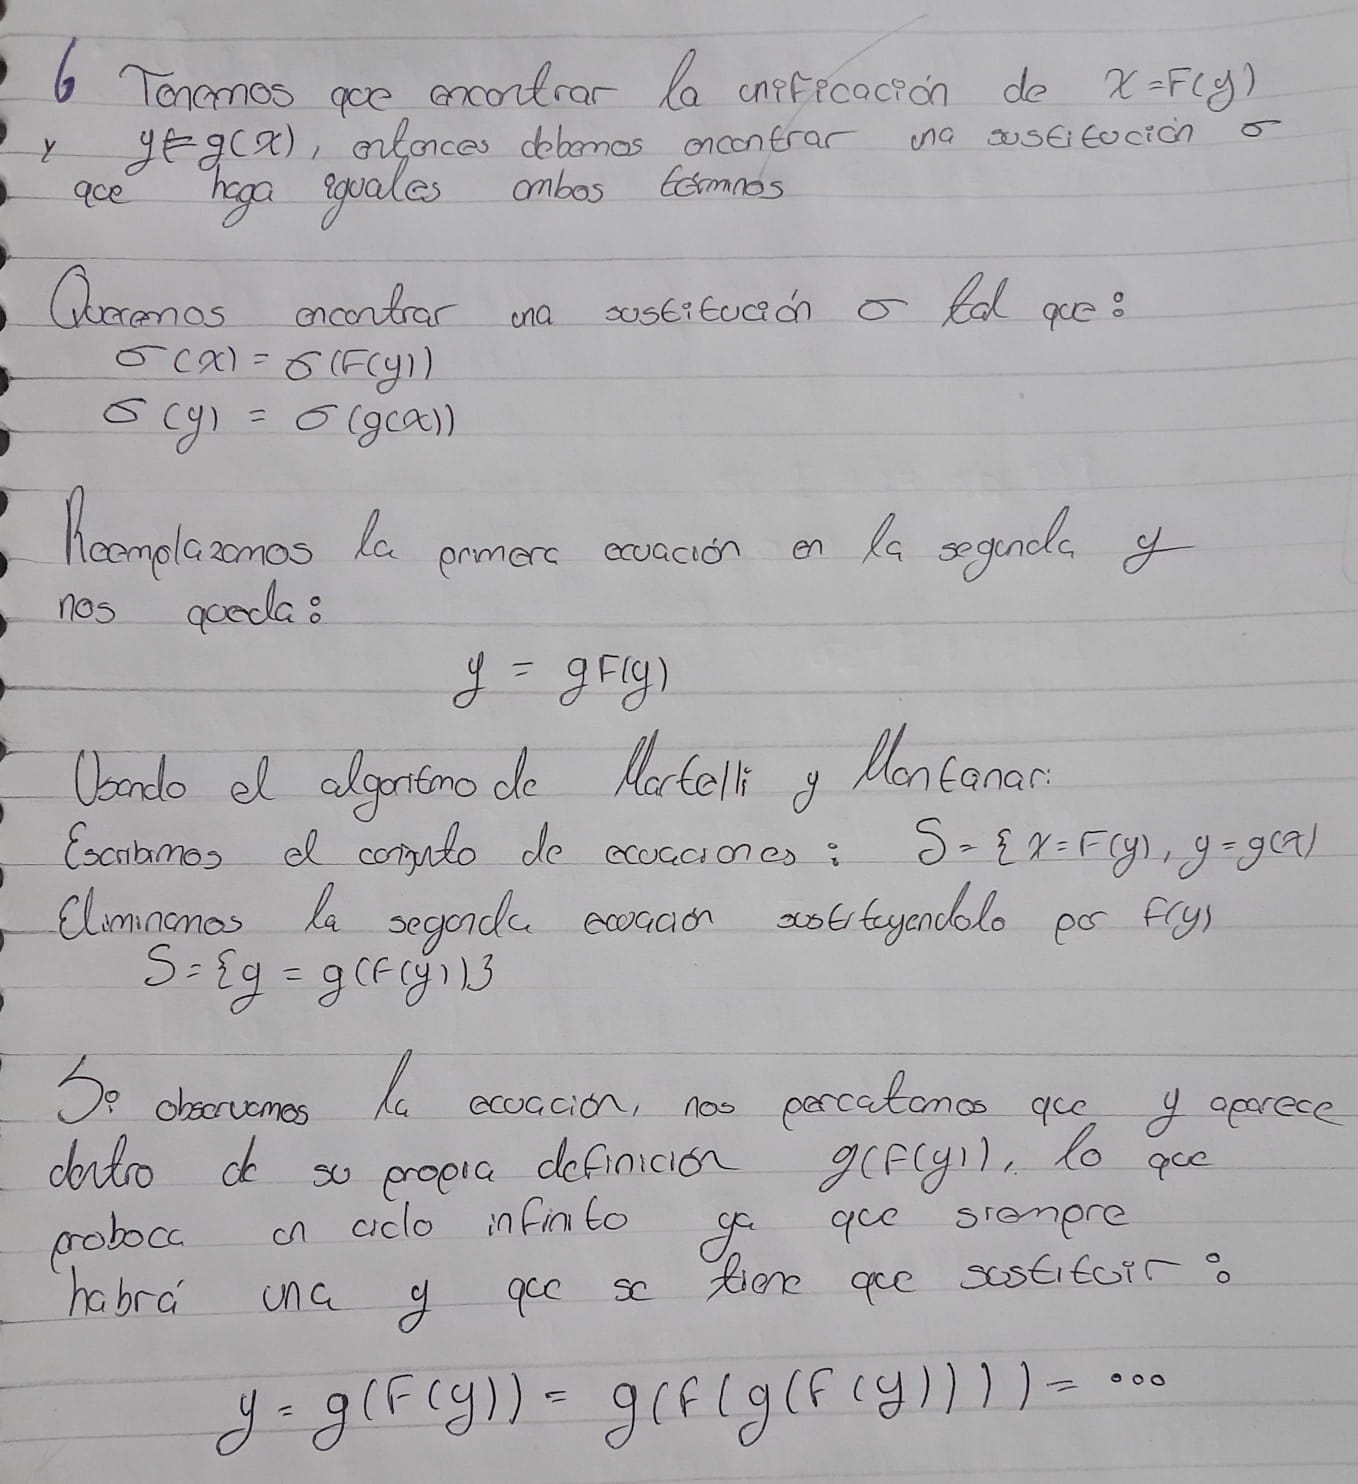 6 Tenemos que encontrar la unificación de x=F(y)
y y=g(x), entonces debemos encontrar una sustitución σ
que haga iguales ambos términos
Queremos encontrar una sustitución σ tal que:
σ(x) = σ(F(y))
σ(y) = σ(g(x))
Reemplazamos la primera ecuación en la segunda y
nos queda:
y = gF(y)
Usando el algoritmo de Martelli y Montanari
Escribimos el conjunto de ecuaciones: S={x=F(y), y=g(x)
Eliminamos la segunda ecuación sustituyendolo por F(y)
S={y = g(F(y))}
Si observemos la ecuación, nos percatamos que y aparece
dentro de su propia definición g(F(y)), lo que
proboca un ciclo infinito ya que siempre
habrá una y que se tiene que sustituir:
y = g(F(y)) = g(F(g(F(y)))) = ...